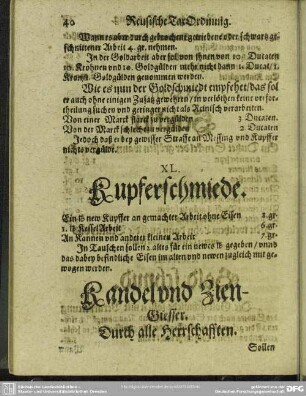 40 Reussische Tax-Ordnung.
Wann es aber durch gebrochene getriebene oder schwartz ge-
schnittener Arbeit 4. gr. nehmen.
In der Goldarbeit aber sol von ihnen von 10 Ducaten
10. Krohnen und 10. Goldgülden mehr nicht dann 1. Ducat/ 1.
Kron/ 1. Goldgülden genommen werden.
Wie es nun der Goldschmiedt empfehet/ das sol
er auch ohne einigen Zusatz gewehren/ im verlöthen keine vor-
theilung suchen und geringer nicht als Reinisch verarbeiten.
Von einer Marck starck zu vergülden 3. Ducaten.
Von der Marck schlecht zu vergülden 2 Ducaten
Jedoch daß er bey gewisser Straffe auf Messing und Kupffer
nichts vergülde.
XL.
Kupferschmiede.
Ein lb new Kupffer an gemachter Arbeit ohne Eisen gr.
1. lb Kessel Arbeit 6 gr.
An Kannen und andere kleinen Arbeit 7. gr.
In Tauschen sollen 2. altes für ein newes lb gegeben / vnnd
das dabey befindlich Eisen im alten vnd newen zugleich mit ge-
wogen werden.
Kandel vnd Zien-
Giesser.
Durch alle Herrschafften.
Sollen